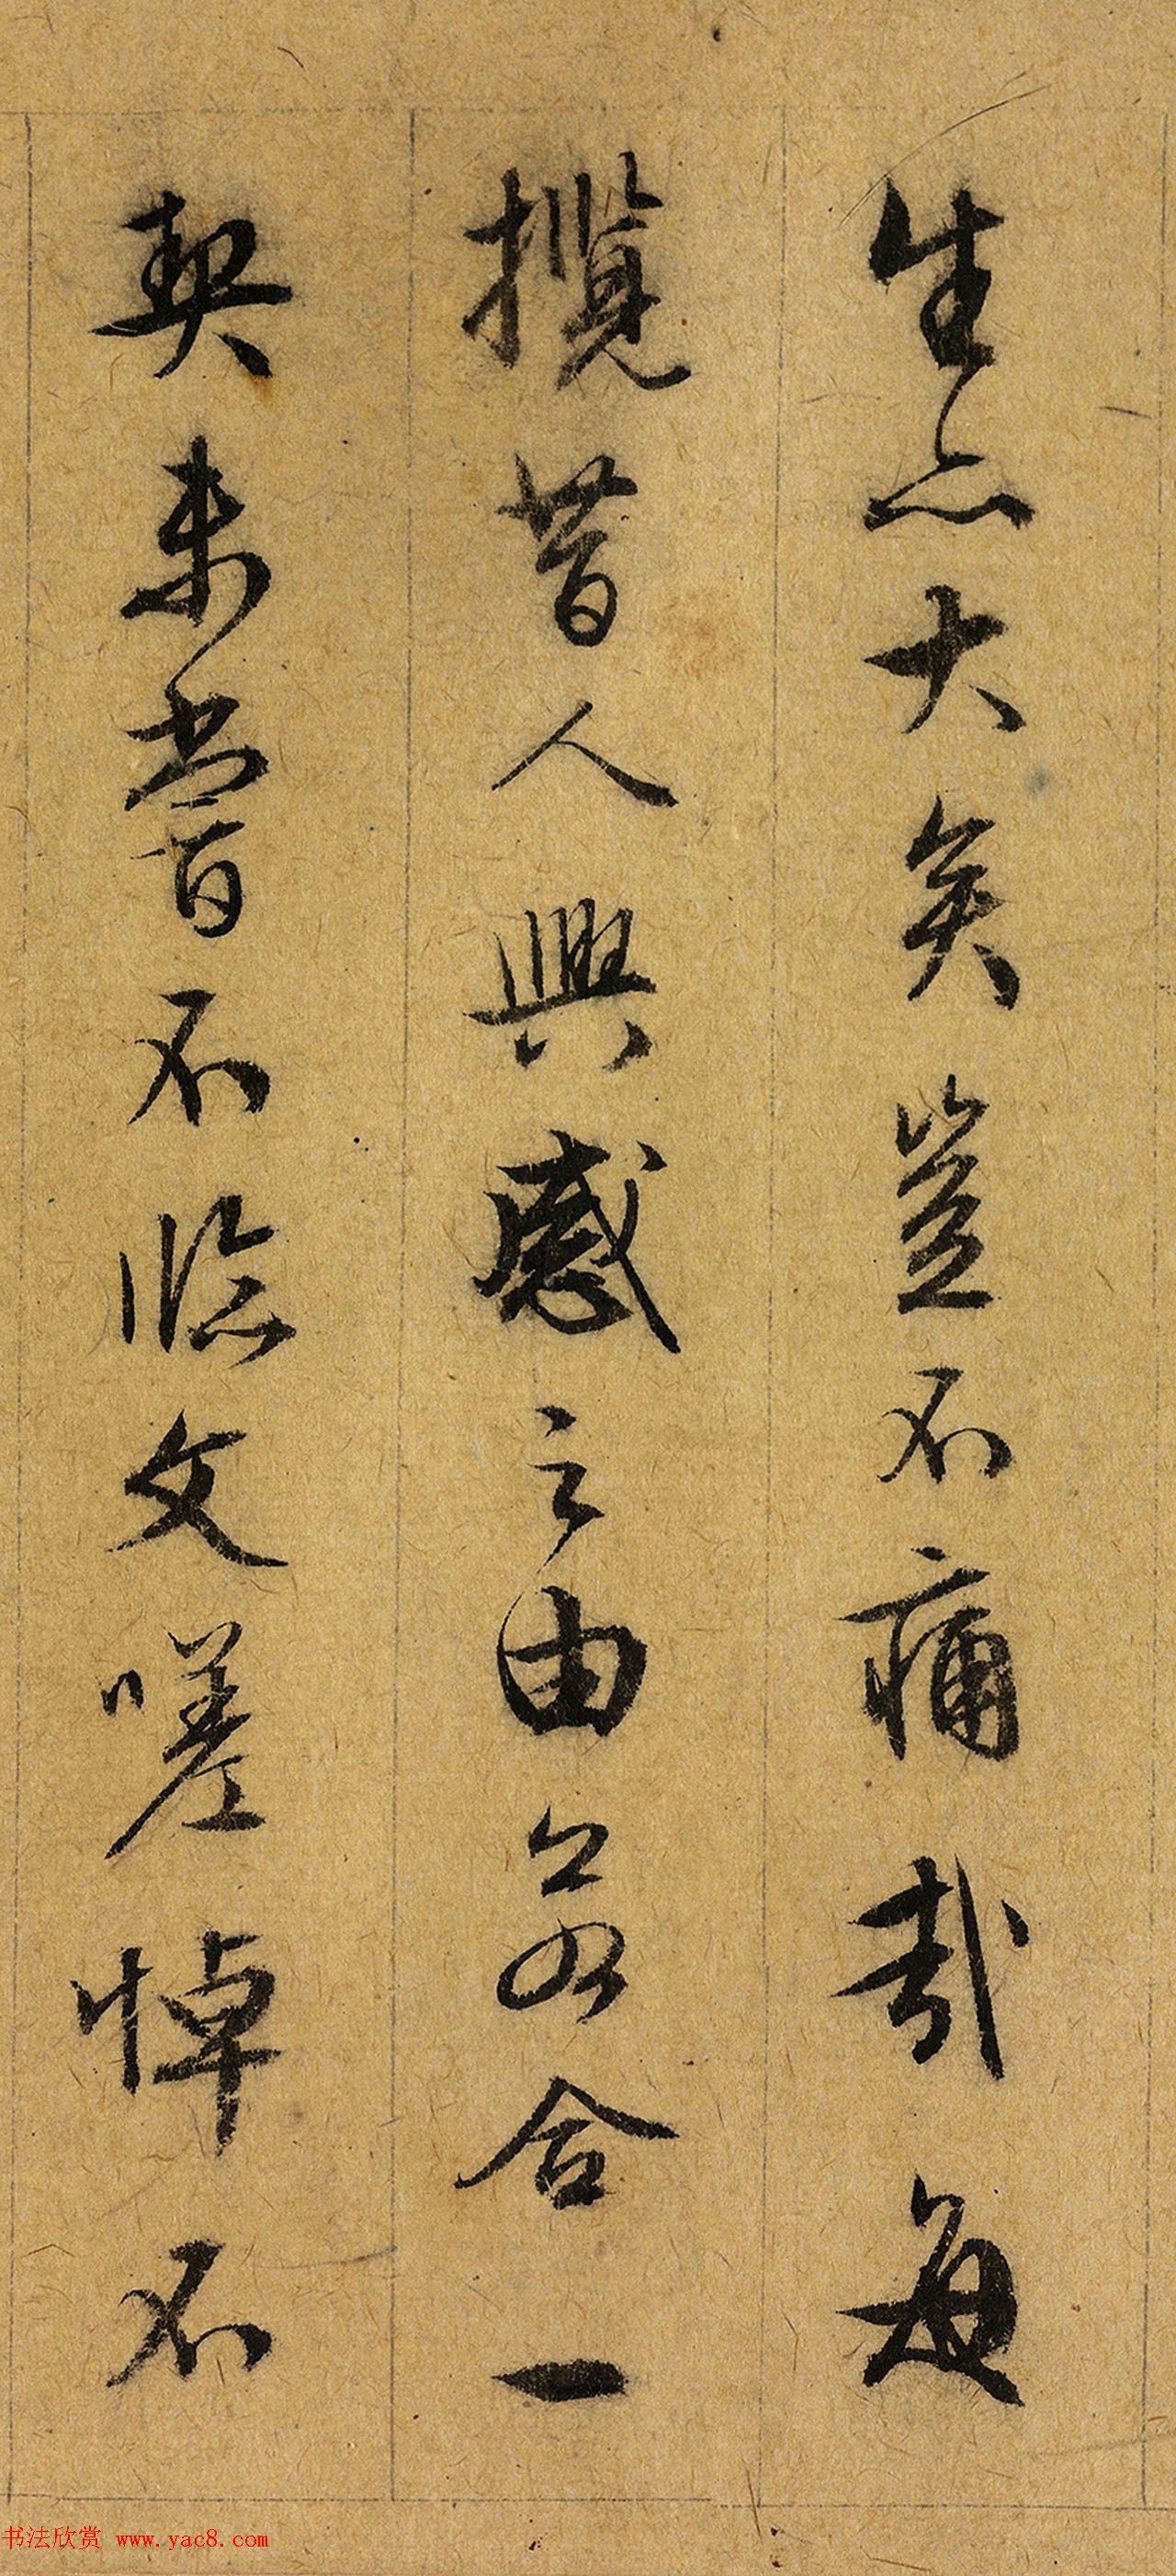 生亦大矣豈不痛哉每
攬昔人興感之由若合一
契未嘗不臨文嗟悼不
书法欣赏 www.yac8.com